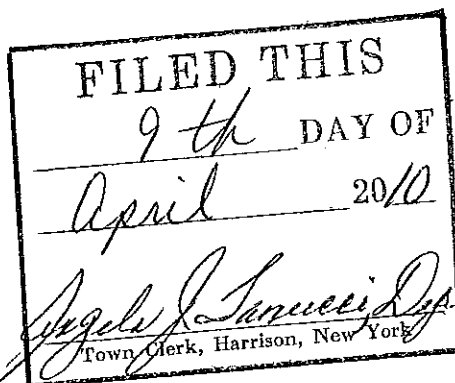 FILED THIS
9th DAY OF
April 2010
Angela J. Ianucci, Dep.
Town Clerk, Harrison, New York